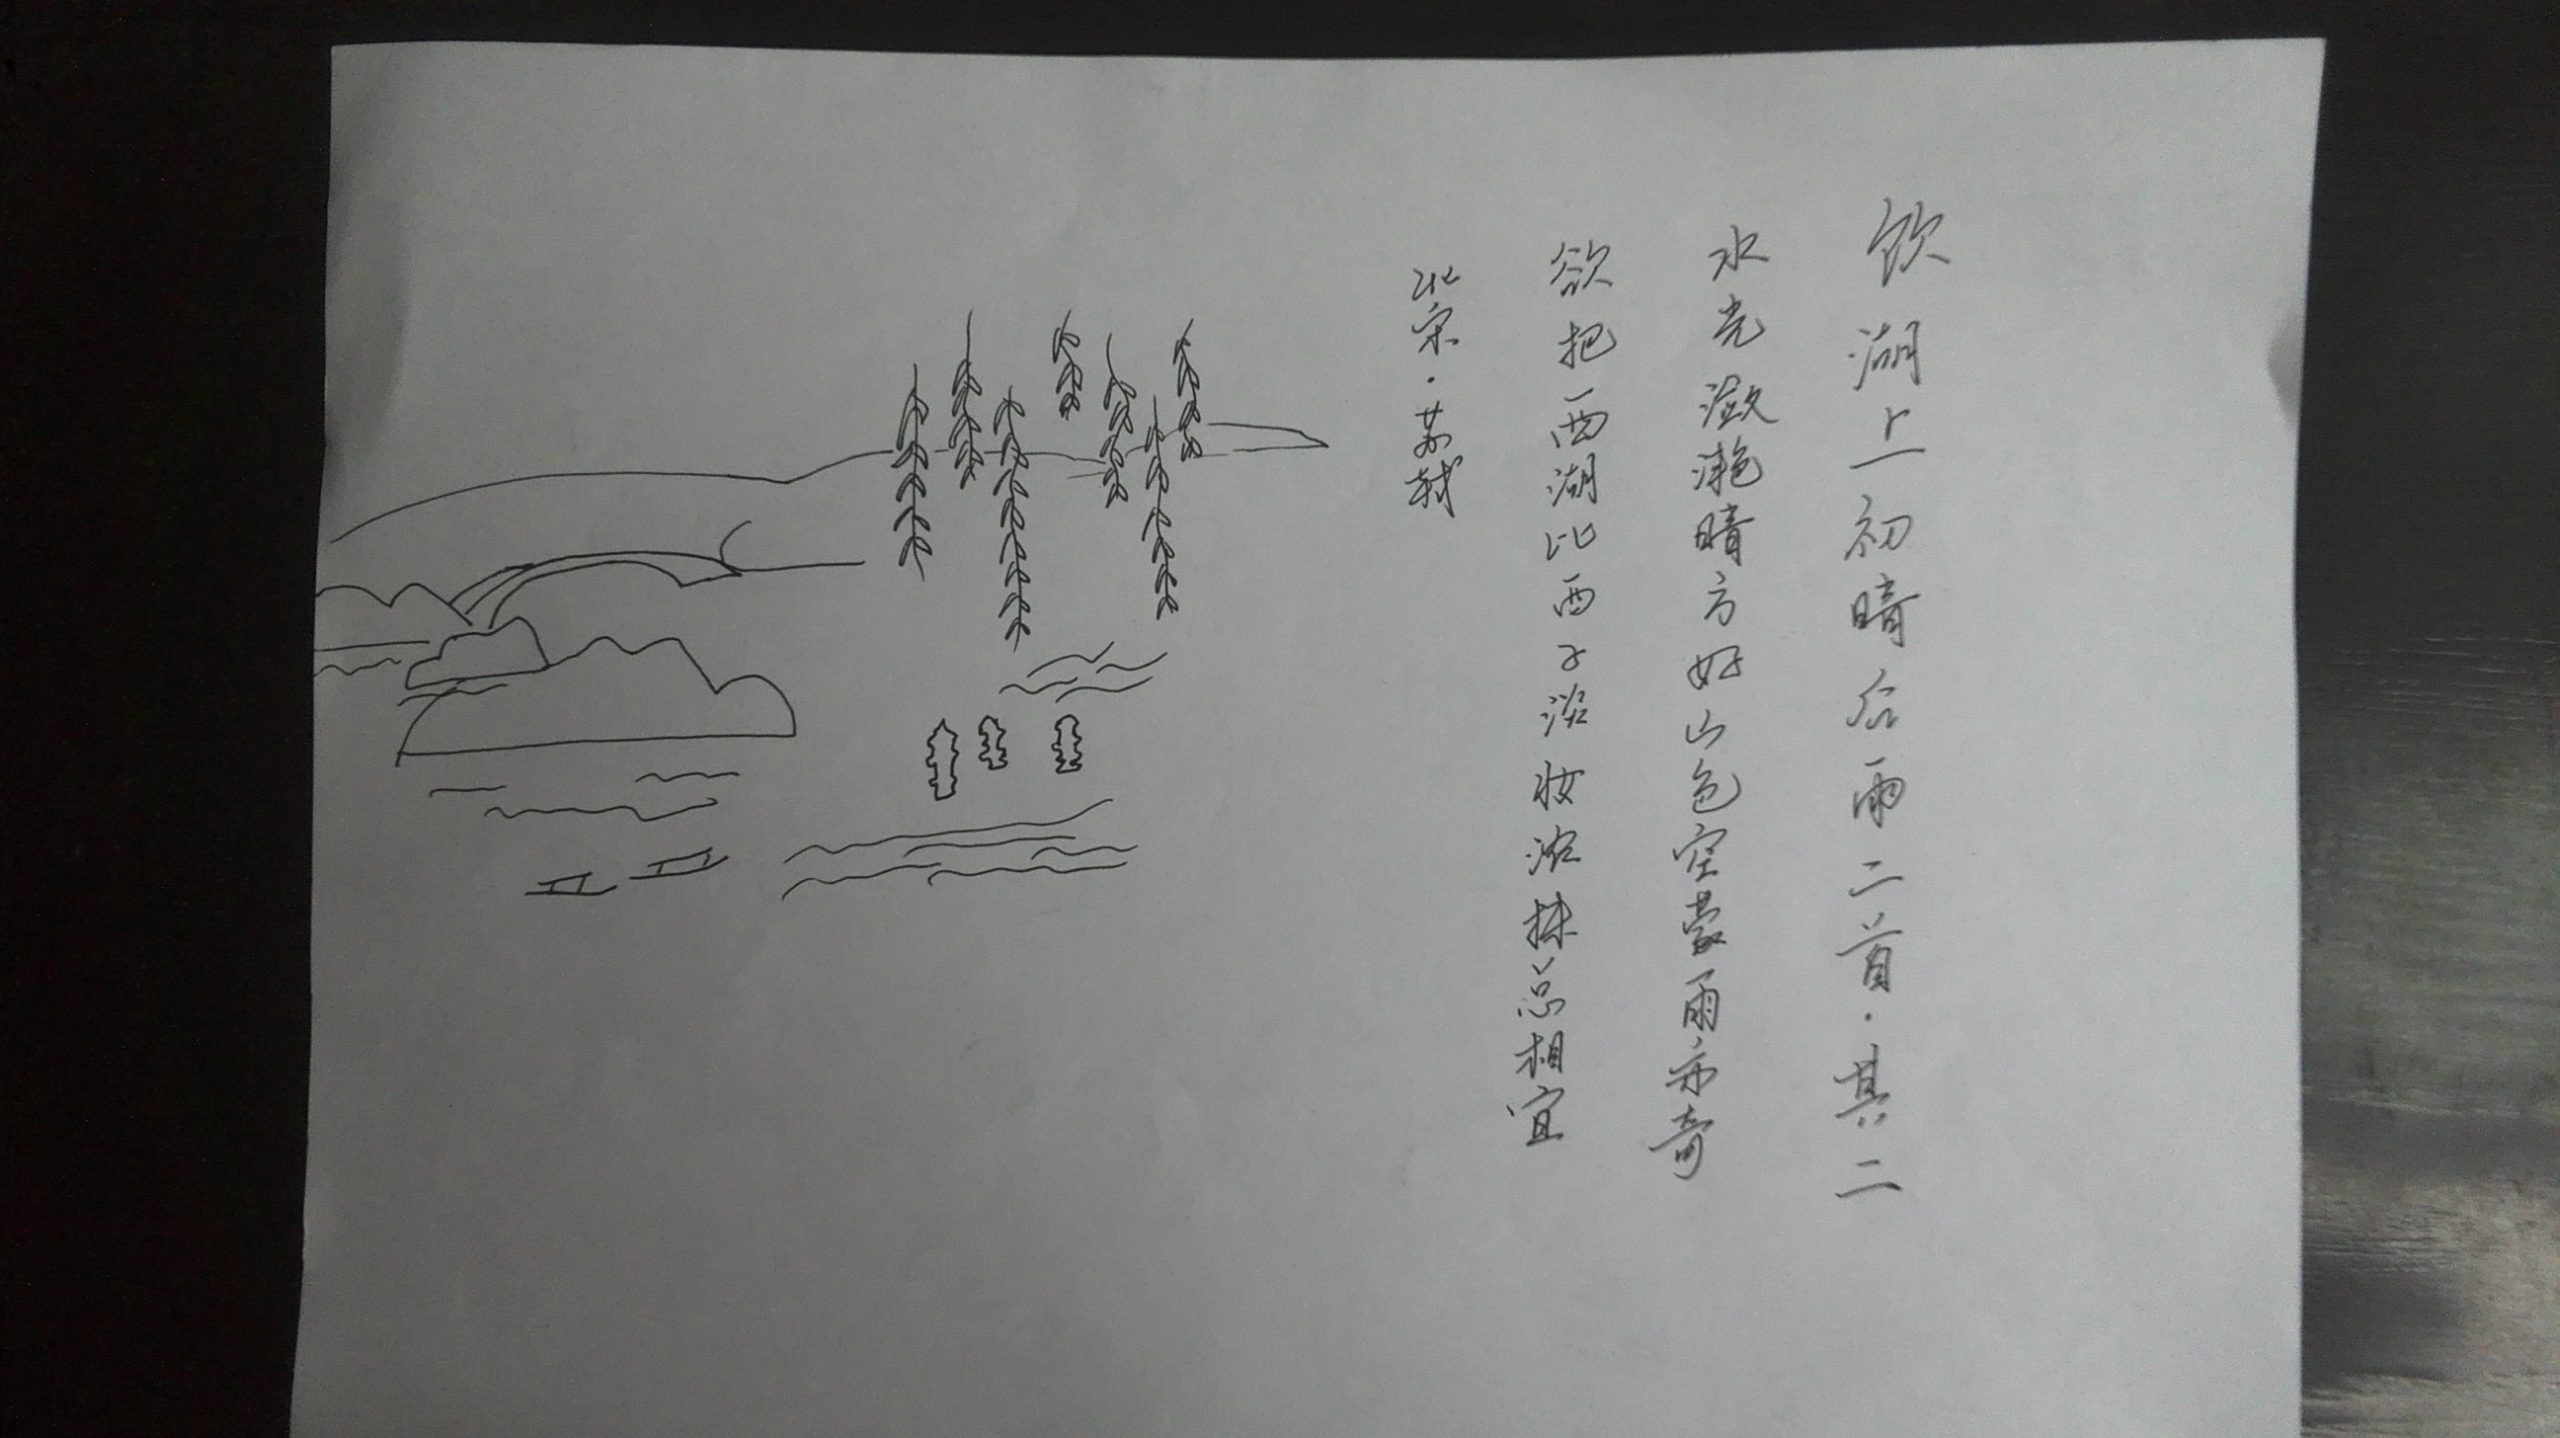 饮湖上初晴后雨二首·其二
水光潋滟晴方好山色空蒙雨亦奇
欲把西湖比西子淡妆浓抹总相宜
北宋·苏轼